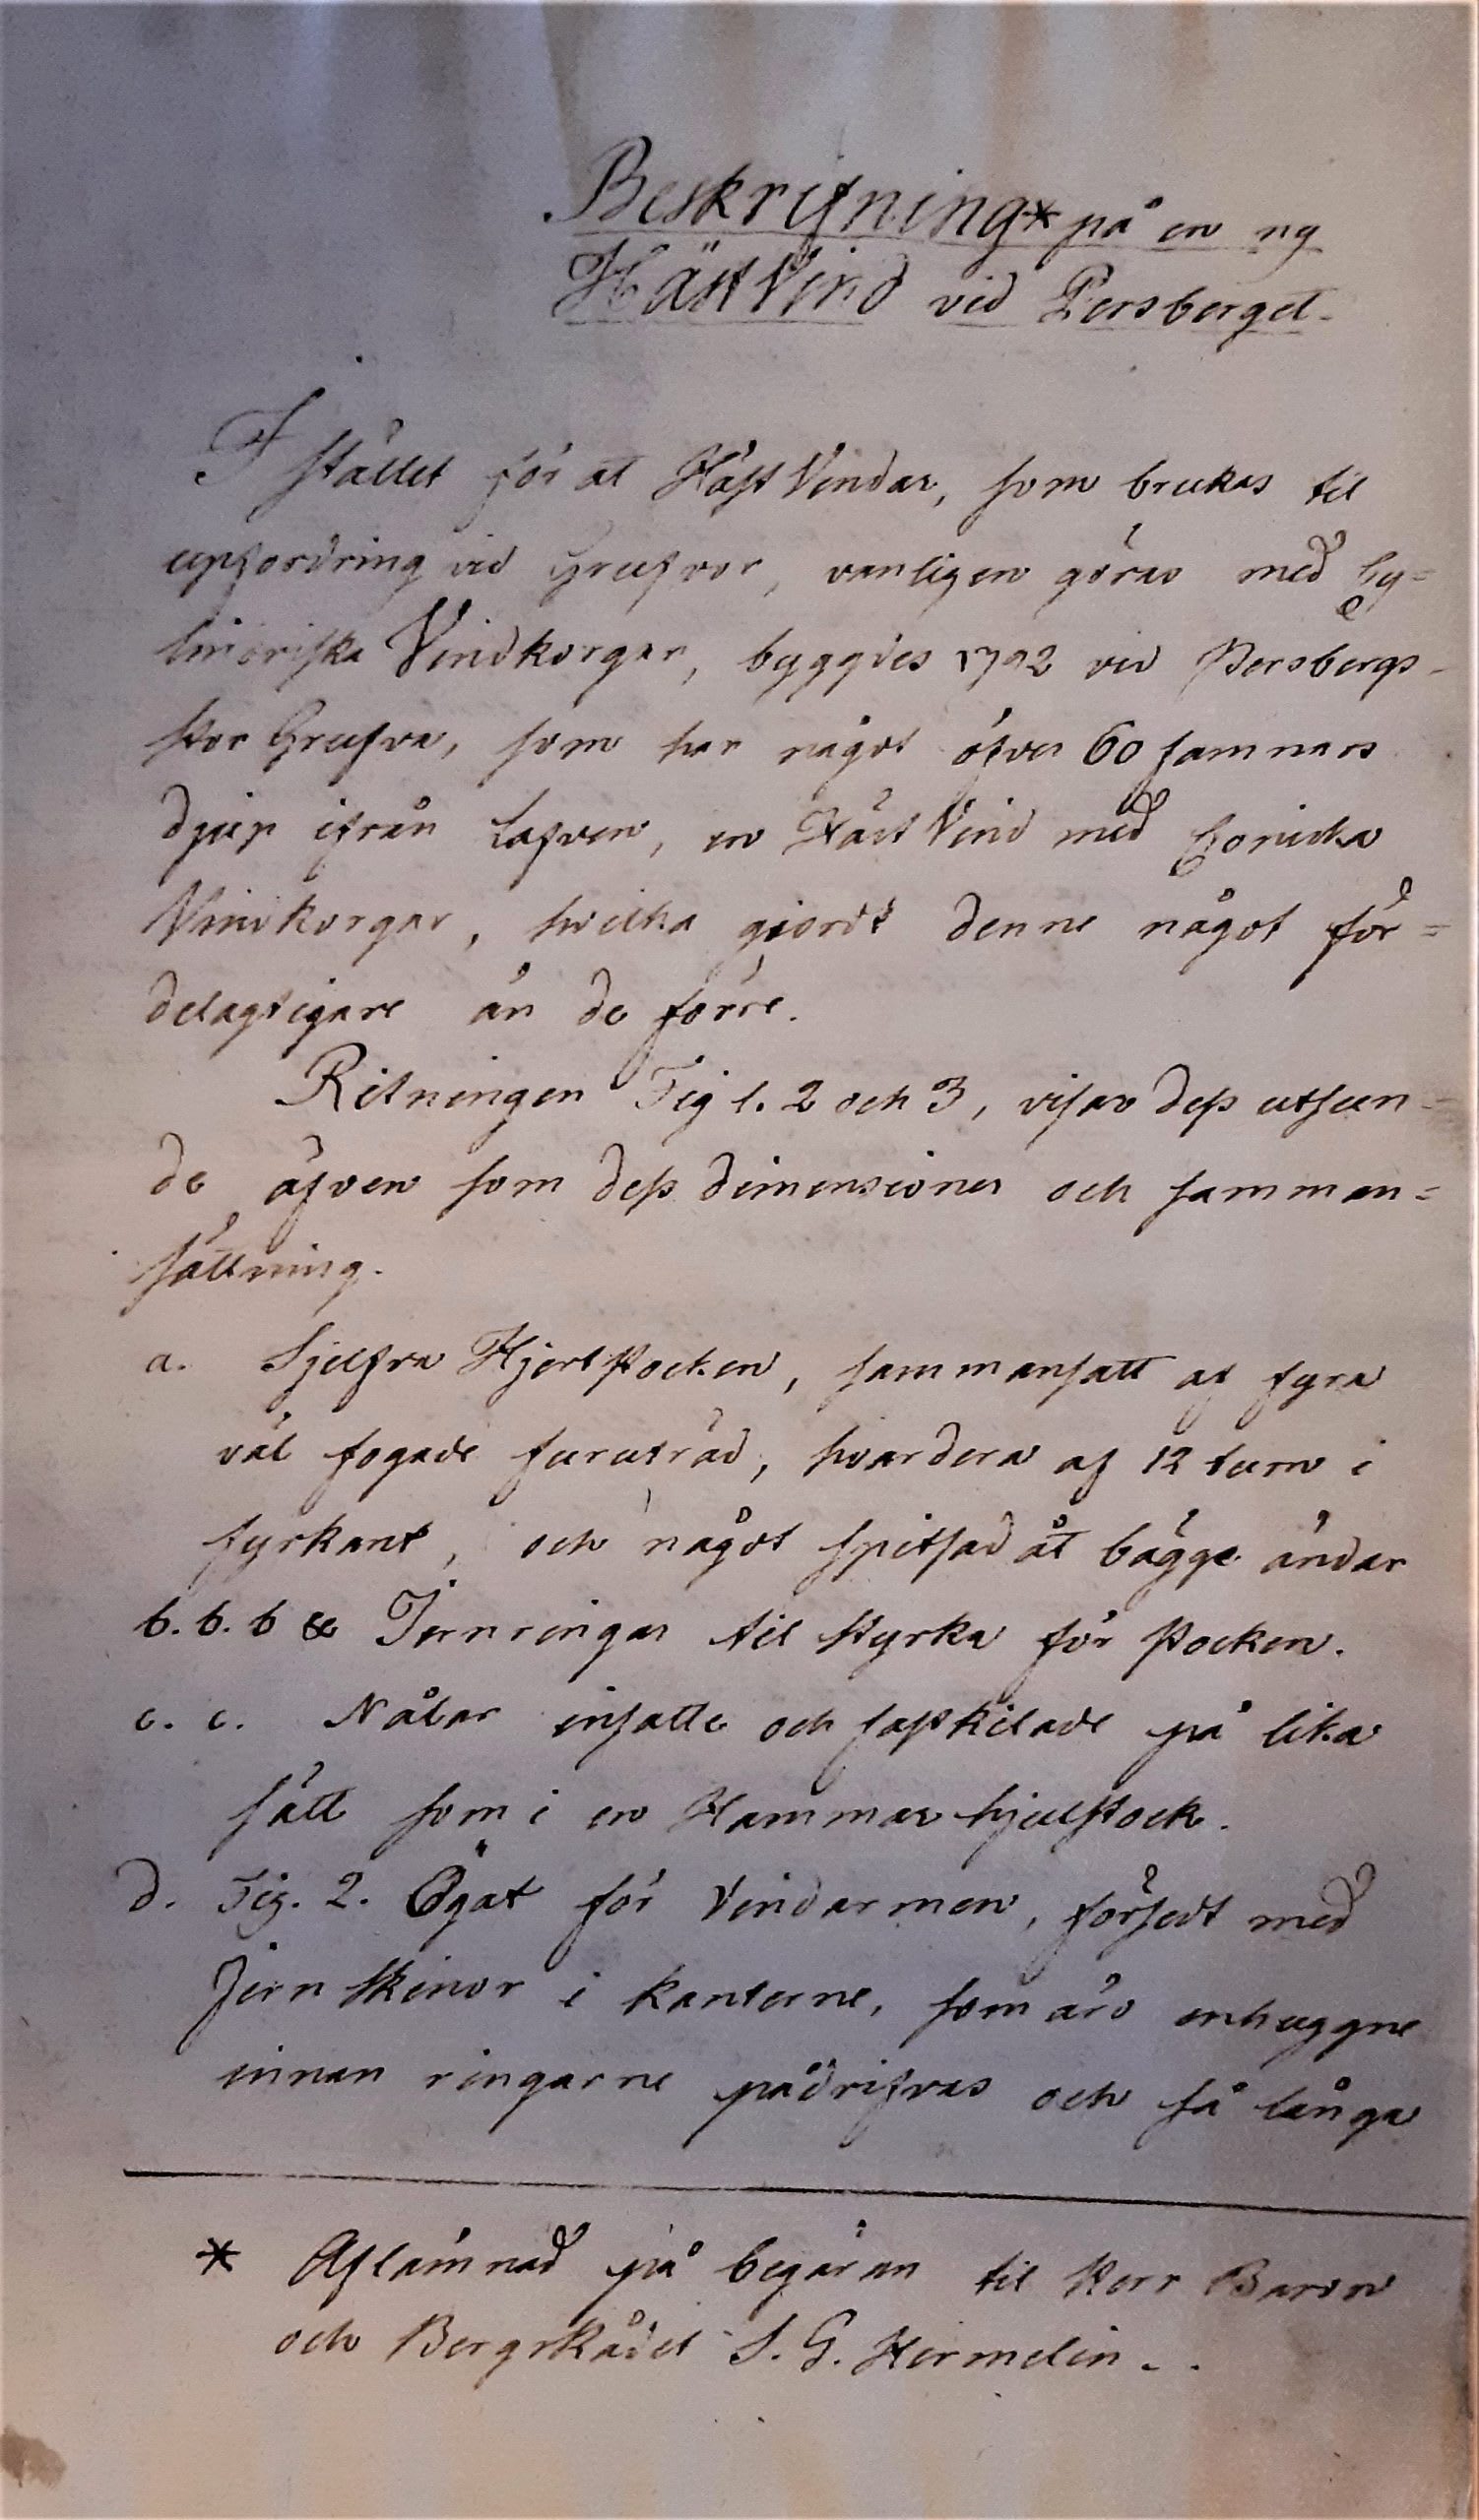 Beskrifning* på en ny
HästVind vid Persberget.
I stället för at HästVindar, som brukas til
upfordring vid Grufvor, vanligen göras med Cy=
lindriska Vindkorgar, byggdes 1792 vid Persbergs
stor Grufva, som har något öfver 60 famnars
djup ifrån Lafven, en HästVind med Coniska
Vindkorgar, hvilka giordt denne något för=
delagtigare än de förre.
Ritningen Fig 1. 2 och 3, visar dess utseen=
de äfven som dess dimensioner och samman=
sättning.
a. Sjelfva Hjertstocken, sammansatt af fyra
väl fogade furuträd, hvardera af 12 tum i
fyrkant, och något spitsad åt bägge ändar
b. b. b & Jernringar til styrka för stocken.
c. c. Nålar insatte och fastkilade på lika
sätt som i en Hammarhjulstock.
d. Fig. 2. Ögat för Vindarmen, försedt med
Jern skenor i kanterne, som äro inhuggne
innan ringarne pådrifvas och så långa
* Aflämnad på begäran til Herr Baron
och BergsRådet S. G. Hermelin.